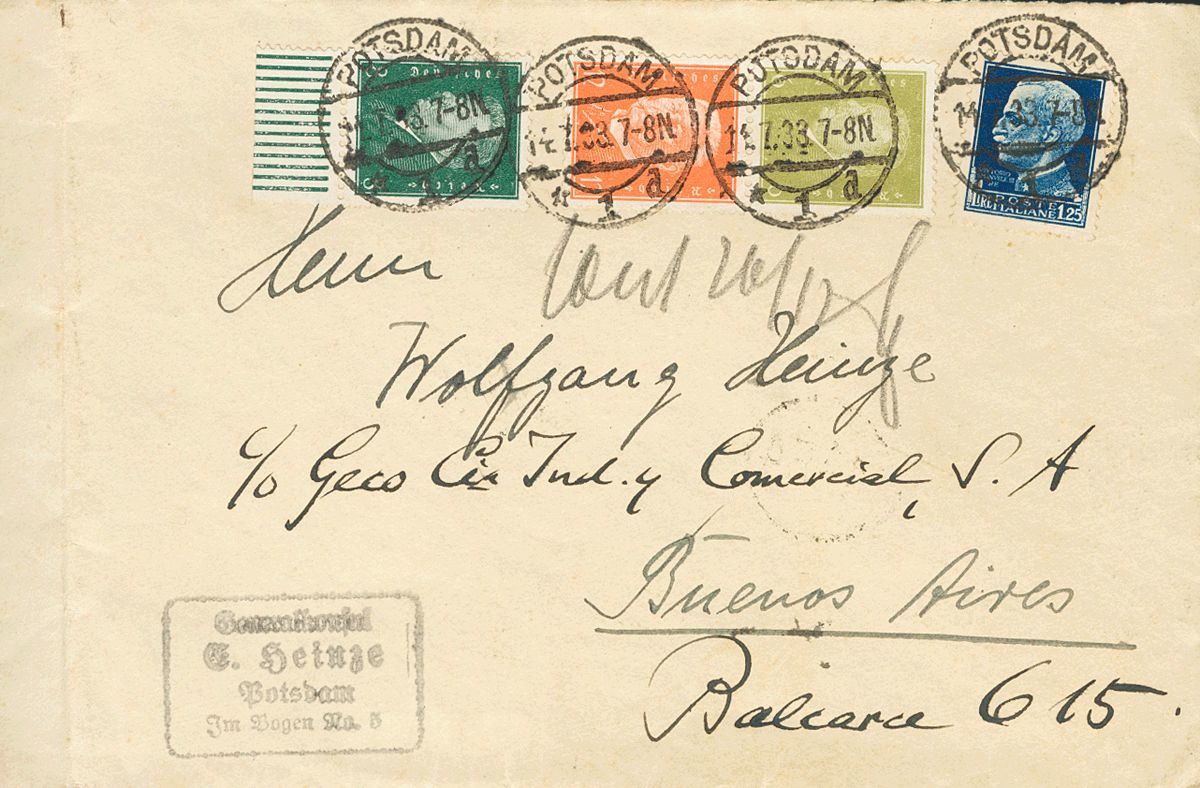 POTSDAM
14.7.33. 7-8N.
* 1 d
POTSDAM
14.7.33. 7-8N.
* 1 d
POTSDAM
14.7.33. 7-8N.
* 1 d
POTSDAM
14.7.33. 7-8N.
Deutsches
Reich
POSTE
ITALIANE
LIRE 1,25
Herrn
Wolfgang Heinze
c/o Geco Cia Ind. y Comercial, S. A
Buenos Aires
Balcarce 615.
Generalkonsul
E. Heinze
Potsdam
Im Bogen No. 5